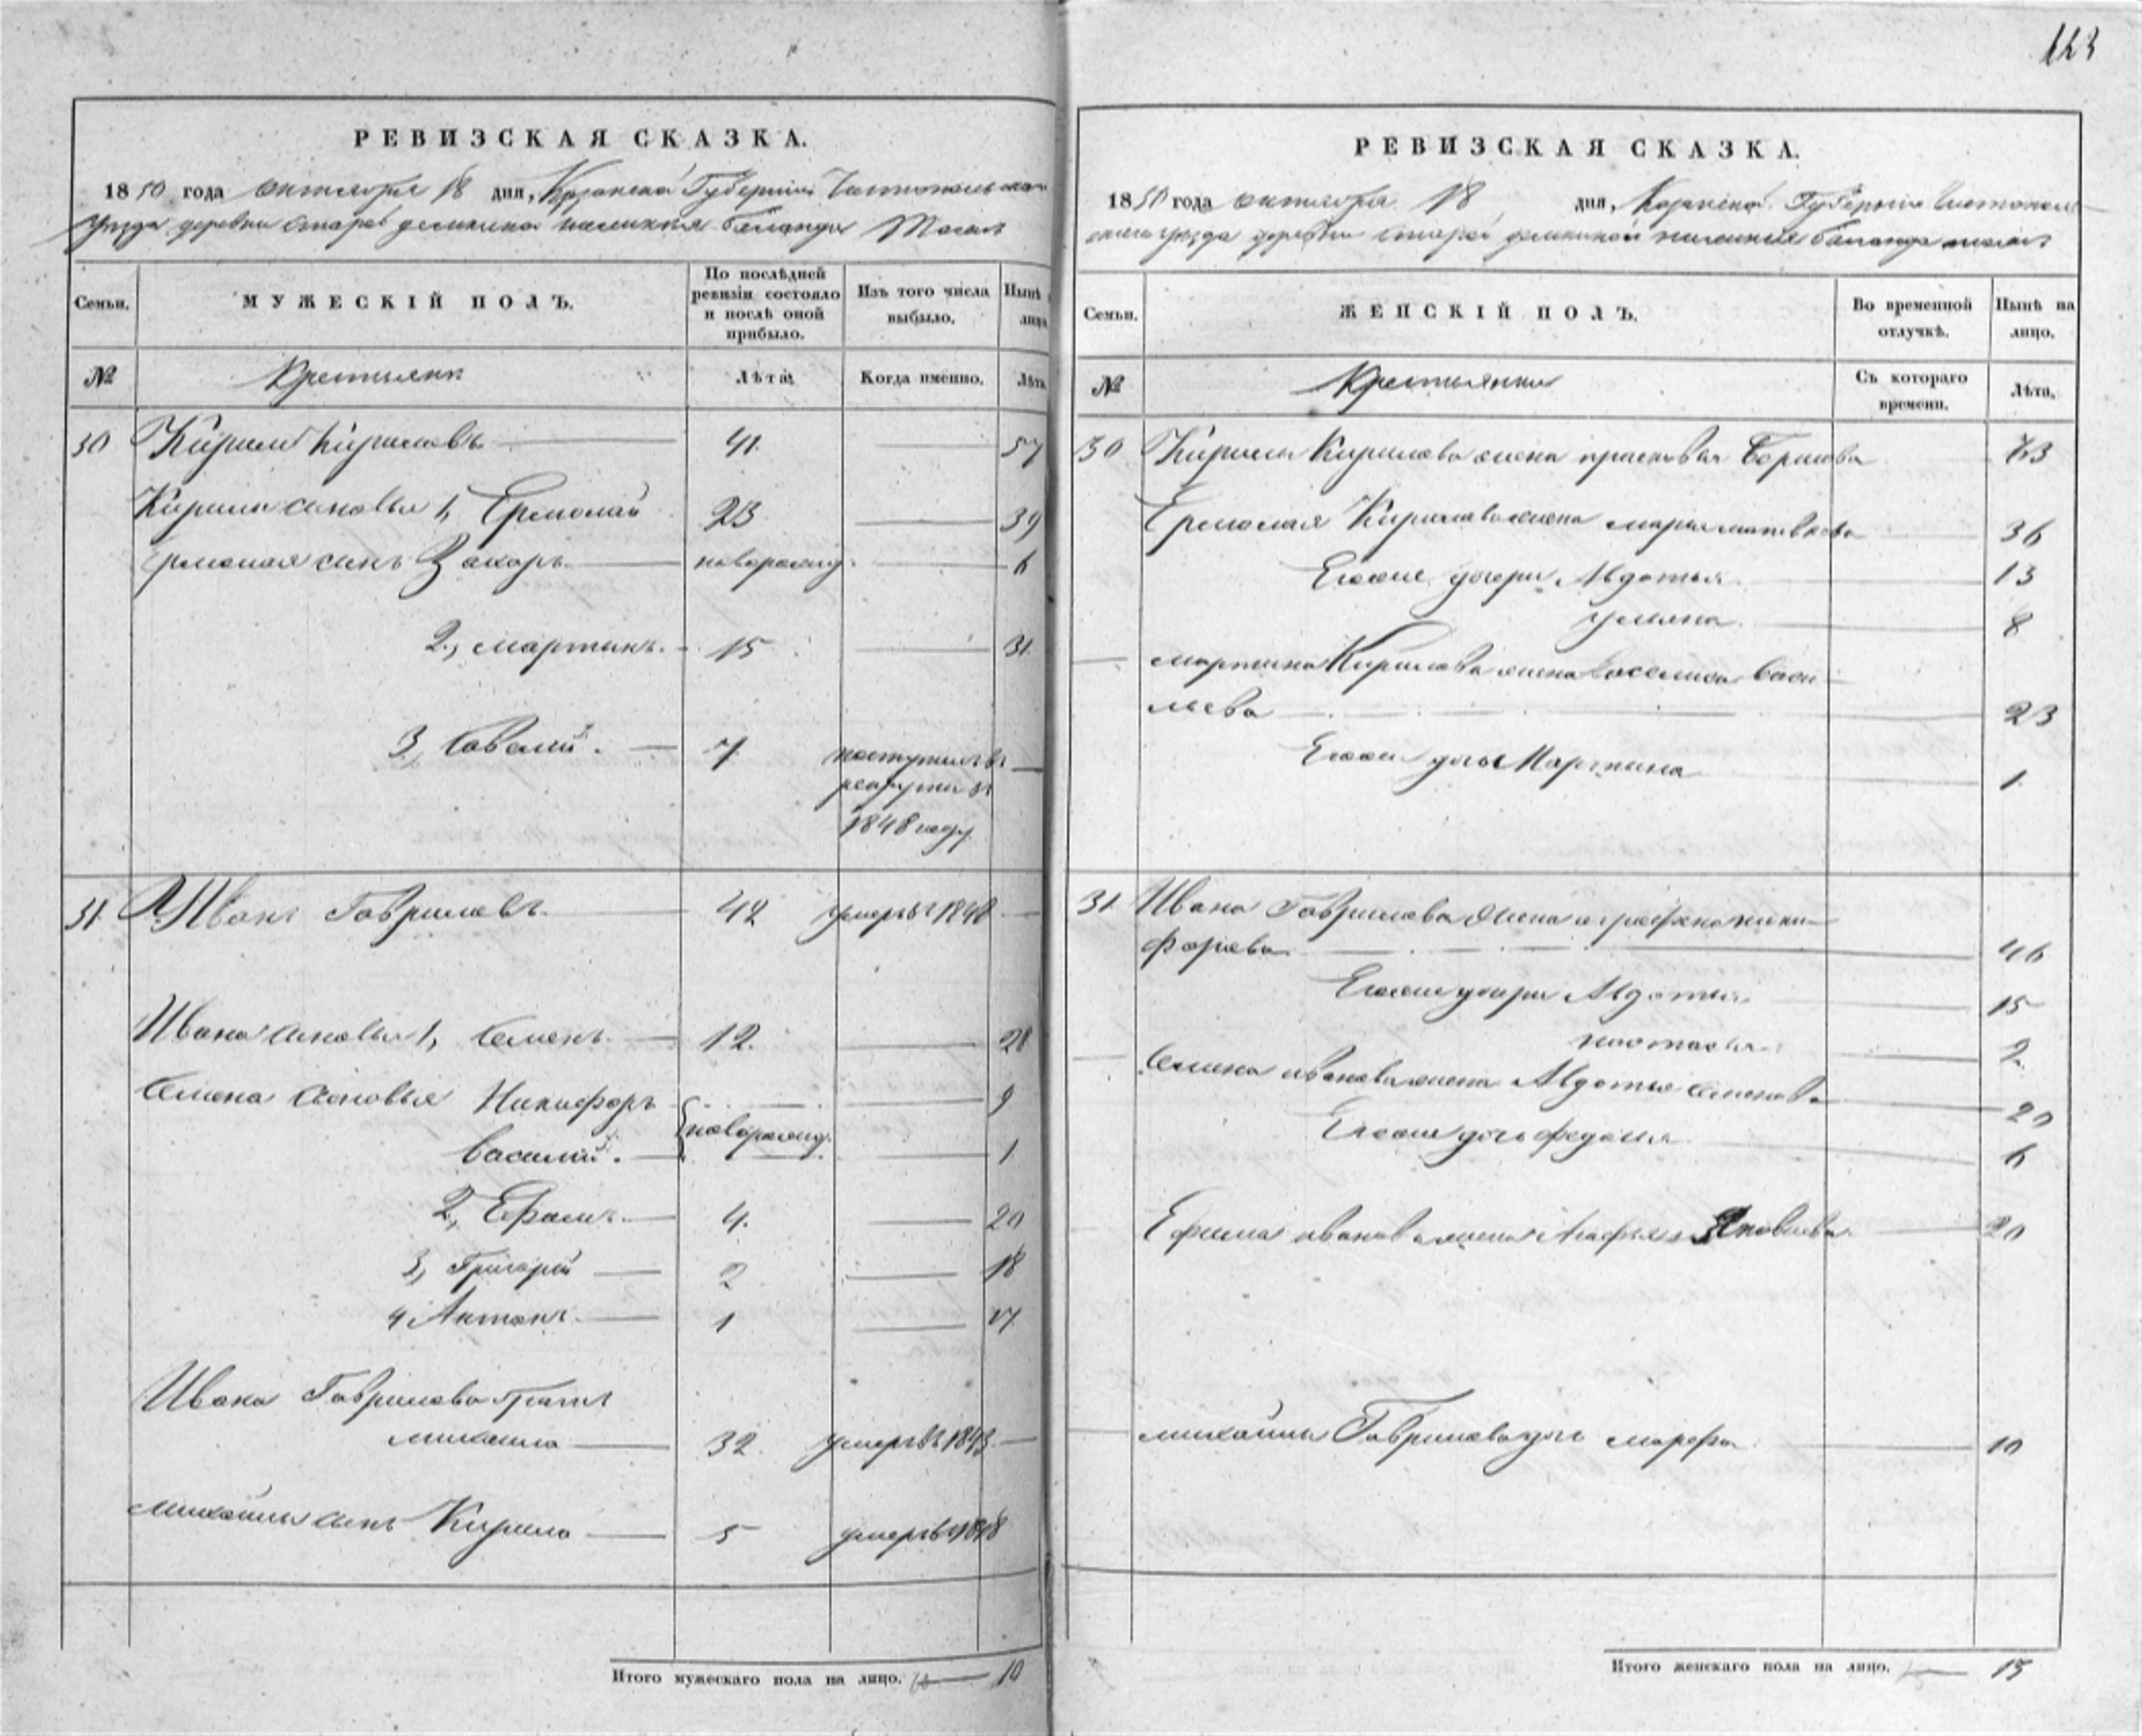 123
РЕВИЗСКАЯ СКАЗКА.
1850 года октября 18 дня, Казанской Губернии Чистопольскаго
Уезда деревни Старой
Семьи. МУЖЕСКІЙ ПОЛЪ. По послѣдней ревизіи состояло и послѣ оной прибыло. Изъ того числа выбыло. Нынѣ лицо
№ Крестьяне Лѣта. Когда именно. Лѣта
30 Кирилъ Кириловъ 41. 57
Кирилы сыновья 1, Ермолай 23 39
Ермолая сынъ Захаръ новорожд. 6
2, Мартынъ. 15 31
3, Савелий. 7 поступилъ въ
рекруты въ
1848 году
31. Иванъ Гавриловъ 42 умеръ въ 1848
Ивана сыновья 1, Семенъ 12. 28
Семена сыновья Никифоръ 9
новорожд.
Василий. 1
2, Ефимъ 4. 20
3, Григорий 2 18
4 Антонъ 1 17
Ивана Гаврилова братъ
Михайла 32. умеръ въ 1843
Михайлы сынъ Кирило 5 умеръ въ 1848
Итого мужескаго пола на лицо. 10
РЕВИЗСКАЯ СКАЗКА.
1850 года октября 18 дня, Казанской Губернии Чистополь
скаго уезда деревни Старой
Семьи. ЖЕНСКІЙ ПОЛЪ. Во временной отлучкѣ. Нынѣ на лицо.
№ Крестьянки Съ котораго времени. Лѣта.
30 Кирилы Кирилова жена Прасковья 43
Ермолая Кирилова жена Марья Матвеева 36
Его же дочери Авдотья 13
Ульяна 8
Мартына Кирилова жена Васелиса Васи
льева 23
Его же дочь Мартина 1
31 Ивана Гаврилова жена Аграфена Ники
форова 46
Его же дочери Авдотья 15
Настасья 2
Семена Иванова жена Авдотья Семенова 29
Его же дочь Федосья 6
Ефима Иванова жена Агафья Яковлева 20
Михайлы Гаврилова дочь Марфа 10
Итого женскаго пола на лицо. 13